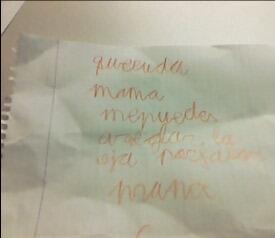 quceuda
mama
mepuedes
areglar la
oja porfabor
mama